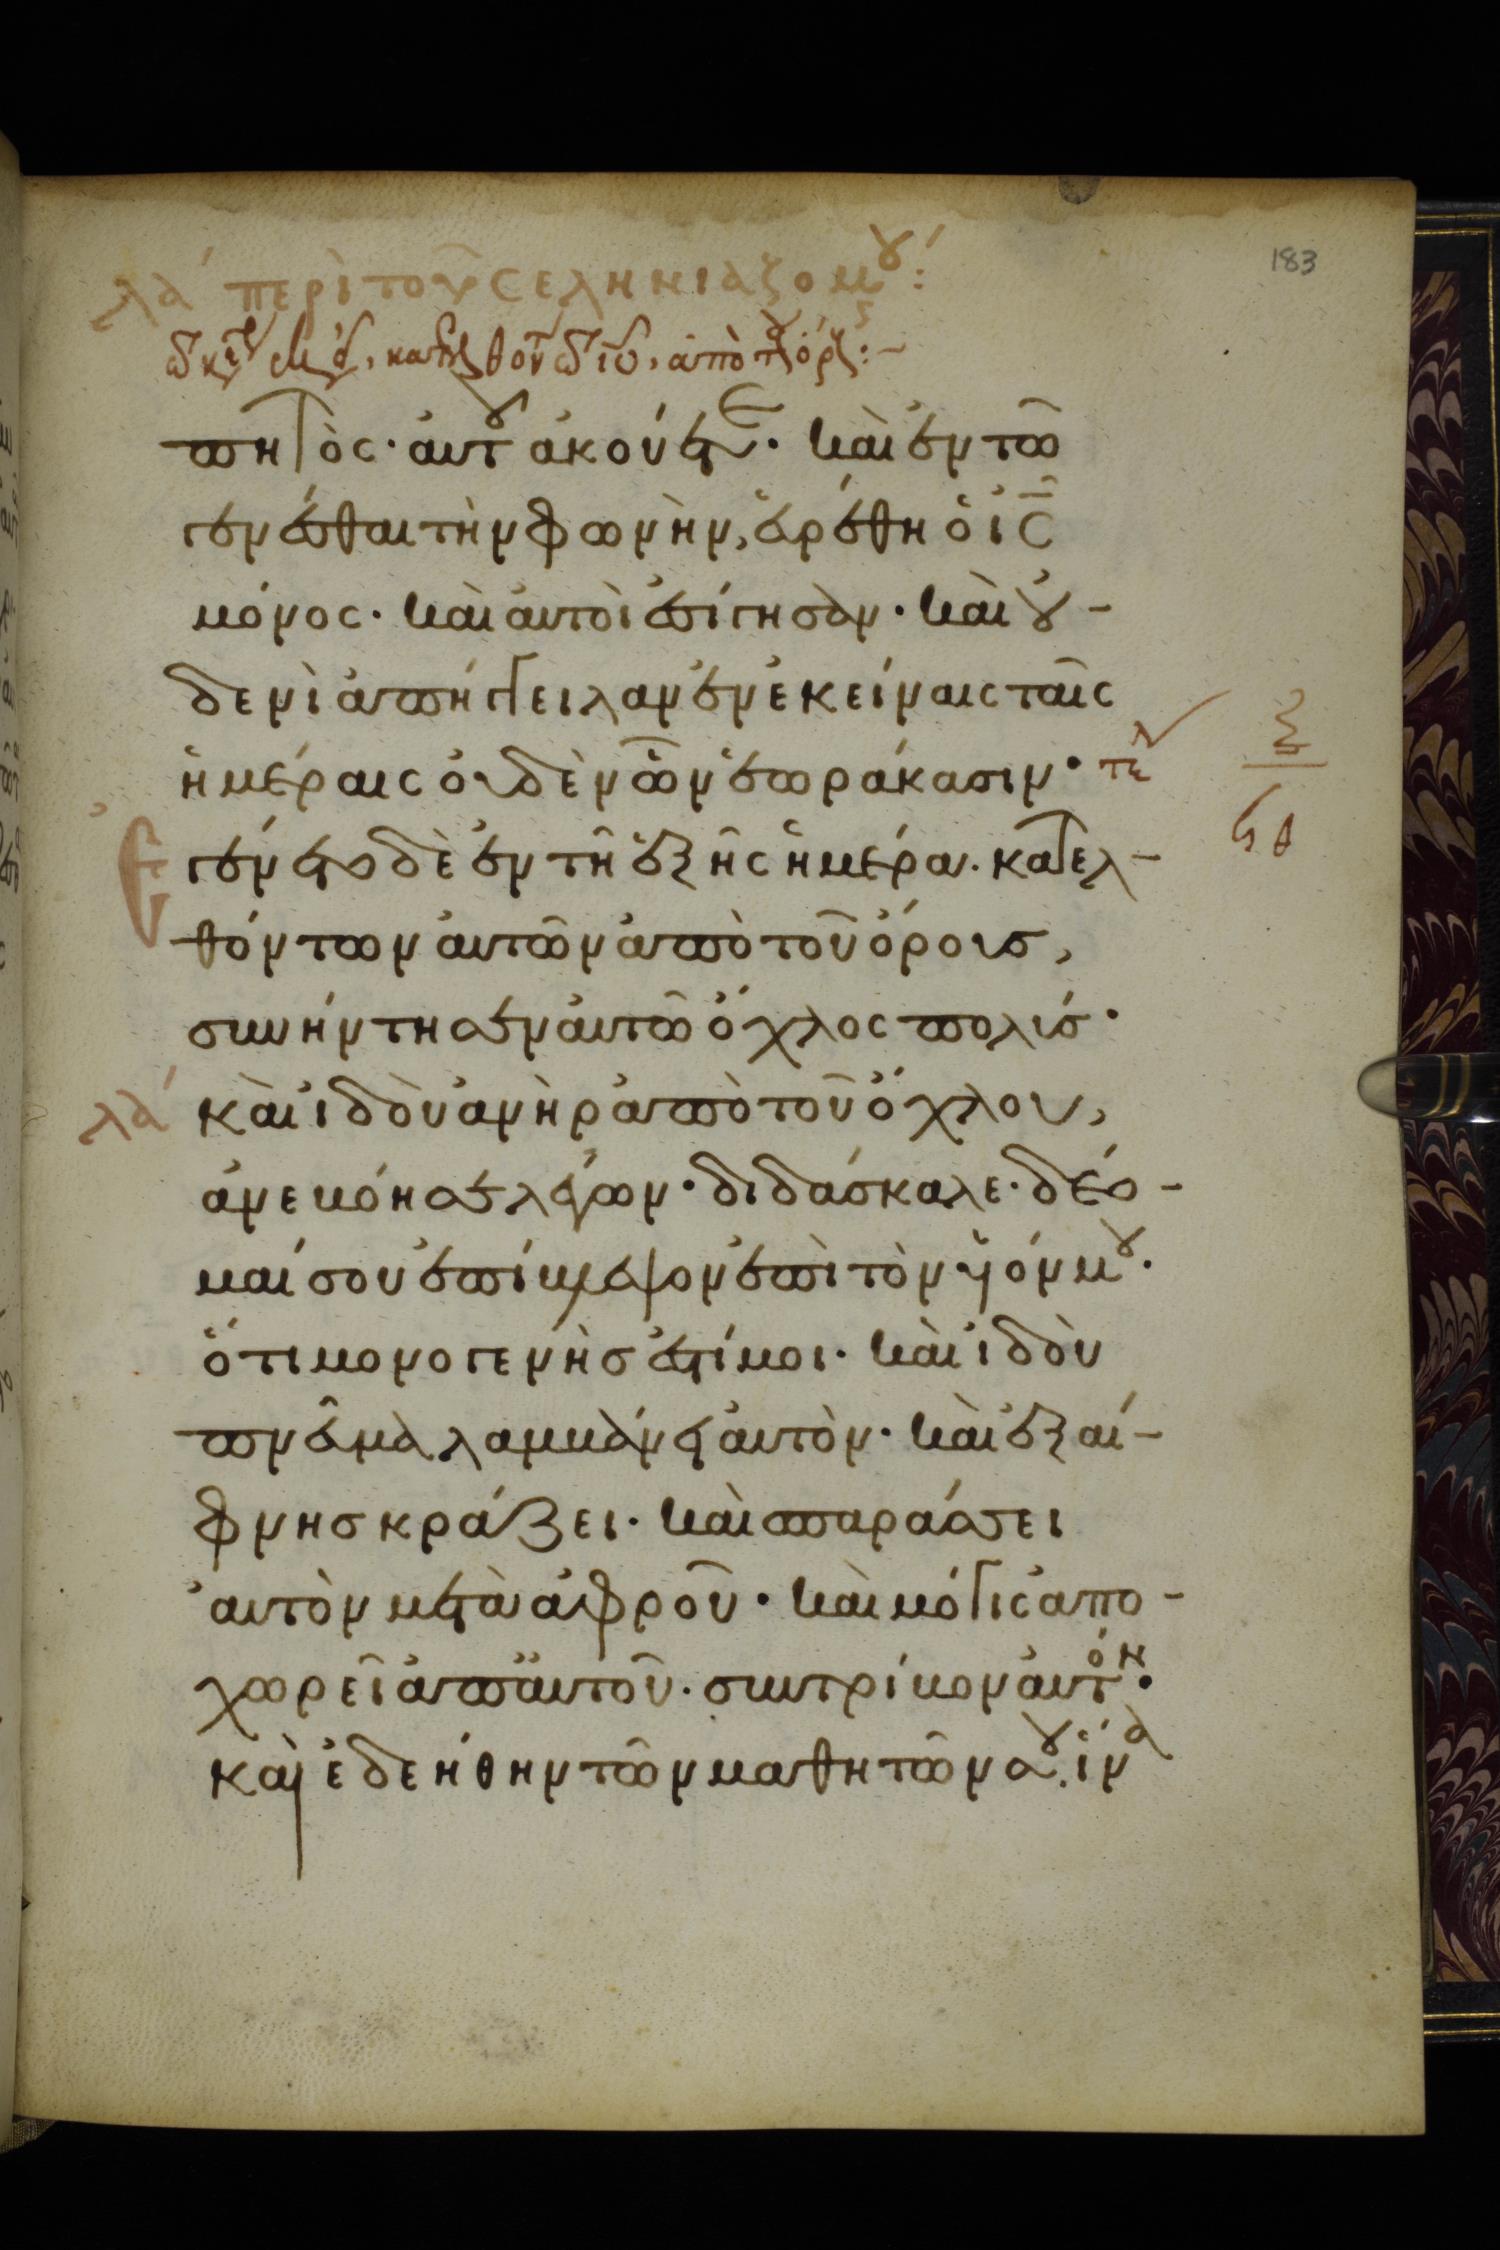 183
λα περὶ τοῦ σεληνιαζομου:
κατελθοντ
ἀπὸ τοῦ ὄρους:-
πητός· αὐτοῦ ἀκούετε· καὶ ἐν τῶ
γενέσθαι τὴν φωνὴν, εὑρέθη ὁ ις
μόνος· καὶ αὐτοὶ ἐσίγησαν· καὶ οὐ-
δενὶ ἀπήγγειλαν ἐν ἐκείναις ταῖς
ἡμέραις οὐδὲν ὧν ἑωράκασιν· τε
λ
ξ
ϛ θ
Ἐγένετο δὲ ἐν τῆ ἑξῆς ἡμέρα· κατελ-
θόντων αὐτῶν ἀπὸ τοῦ ὄρους,
συνήντησεν αὐτῶ ὄχλος πολύς·
λα καὶ ἰδοὺ ἀνὴρ ἀπὸ τοῦ ὄχλου,
ἀνεβόησε λέγων· διδάσκαλε· δέο-
μαί σου ἐπίβλεψον ἐπὶ τὸν υἱόν μου·
ὅτι μονογενὴς ἐστί μοι· καὶ ἰδοὺ
πνεῦμα λαμβάνει αὐτὸν· καὶ ἐξαί-
φνης κράζει· καὶ σπαράσσει
αὐτὸν μετὰ ἀφροῦ· καὶ μόγις ἀπο-
χωρεῖ ἀπ αὐτοῦ· συντρίβον αὐτόν·
καὶ ἐδεήθην τῶν μαθητῶν σου, ἵνα